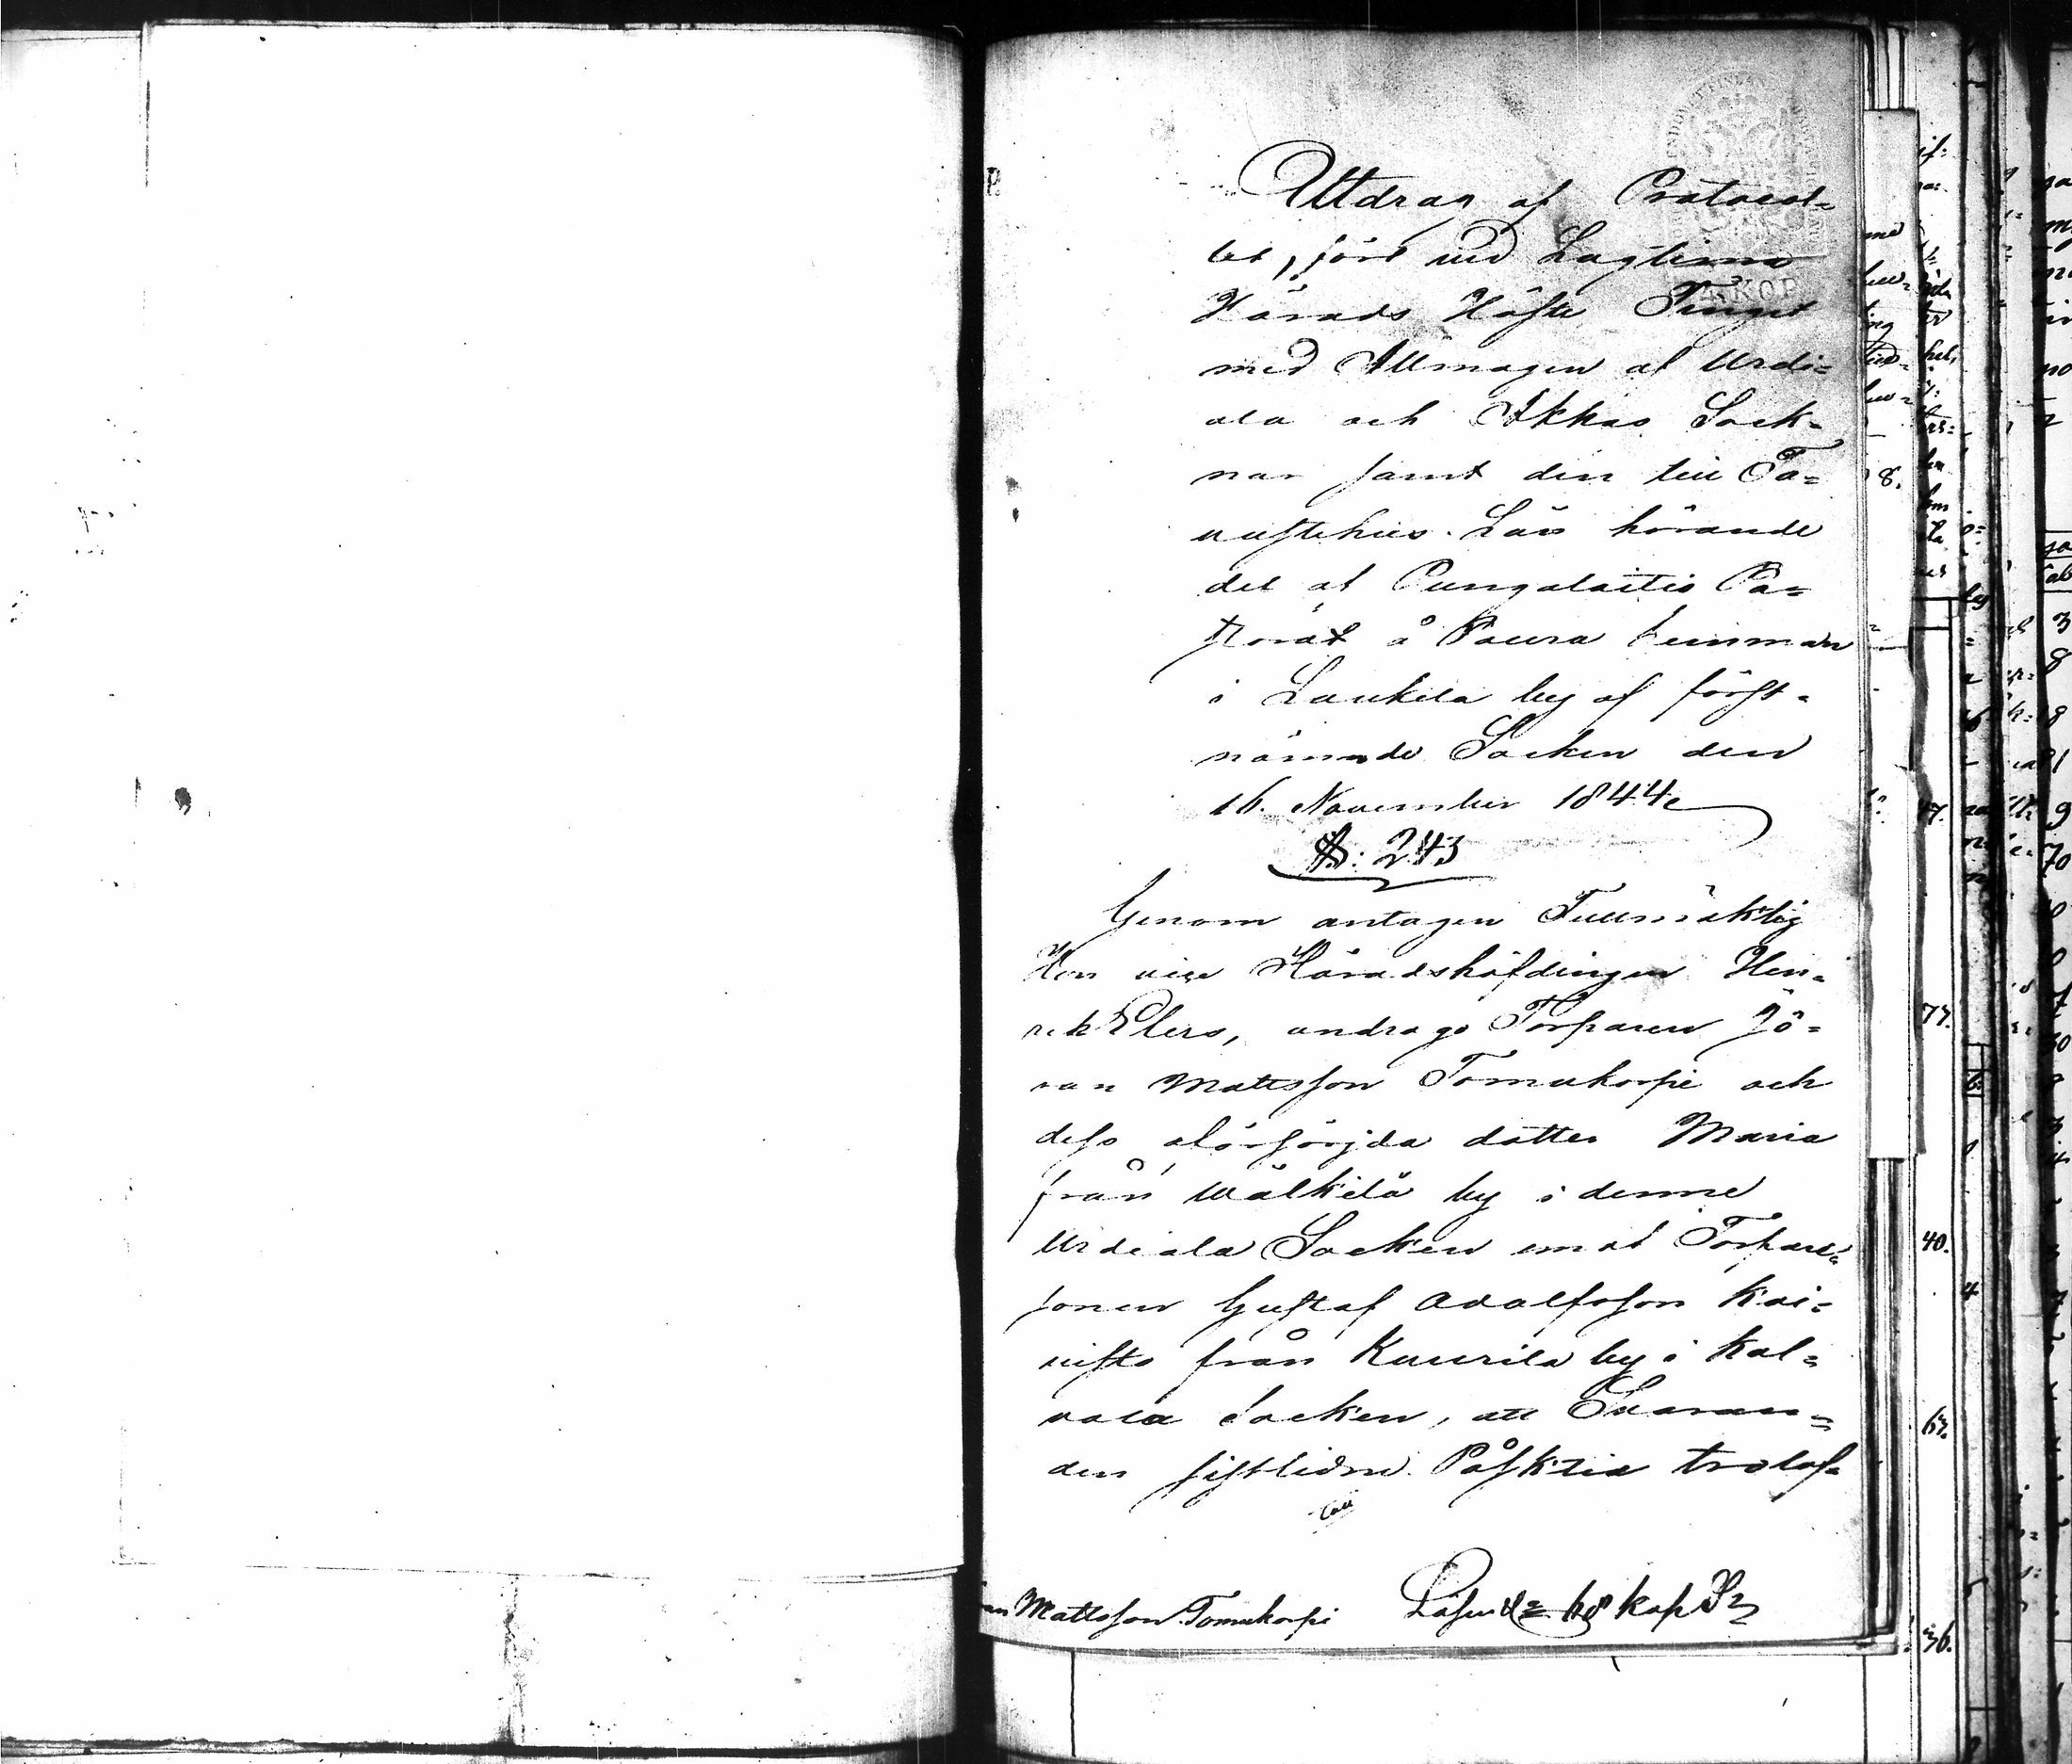 Utdrag af Protocol-
let, fört vid Lagtima
Härads Höste Tinget
med Allmogen af Urdi-
ala och Akkas Sock-
nar samt den till Ta-
vastehus Län hörande
del af Pungalaitis Pa-
storat å Paura Heinman
i Laukela by af först-
nämnde Socken den
16. November 1844
§: 243
Genom antagen Fullmäktig
Herr vice Häradshöfdingen Hen-
rik Elers, androgo Torparen Jö-
ran Mattsson Tomukorpi och
dess oförsörjda dotter Maria
från Wälkilä by i denne
Urdiala Socken emot Torpare-
sonen Gustaf Adolfsson Koi-
visto från Kuurila by i Kal-
vola Socken, att Svaran-
den sistlidne Påsktid trolof-
Mattsson Tomukorpi
Lösen kop Sr